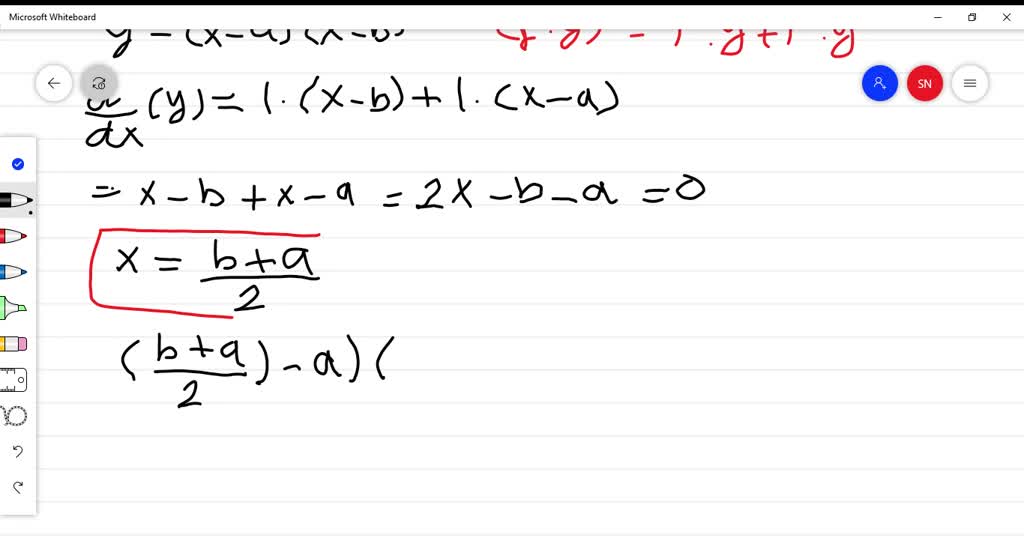 Microsoft Whiteboard
y = (x-a)(x-b)
SN
d/dx (y) = 1·(x-b)+1·(x-a)
= x-b+x-a = 2x-b-a = 0
x = (b+a)/2
((b+a)/2)-a)(